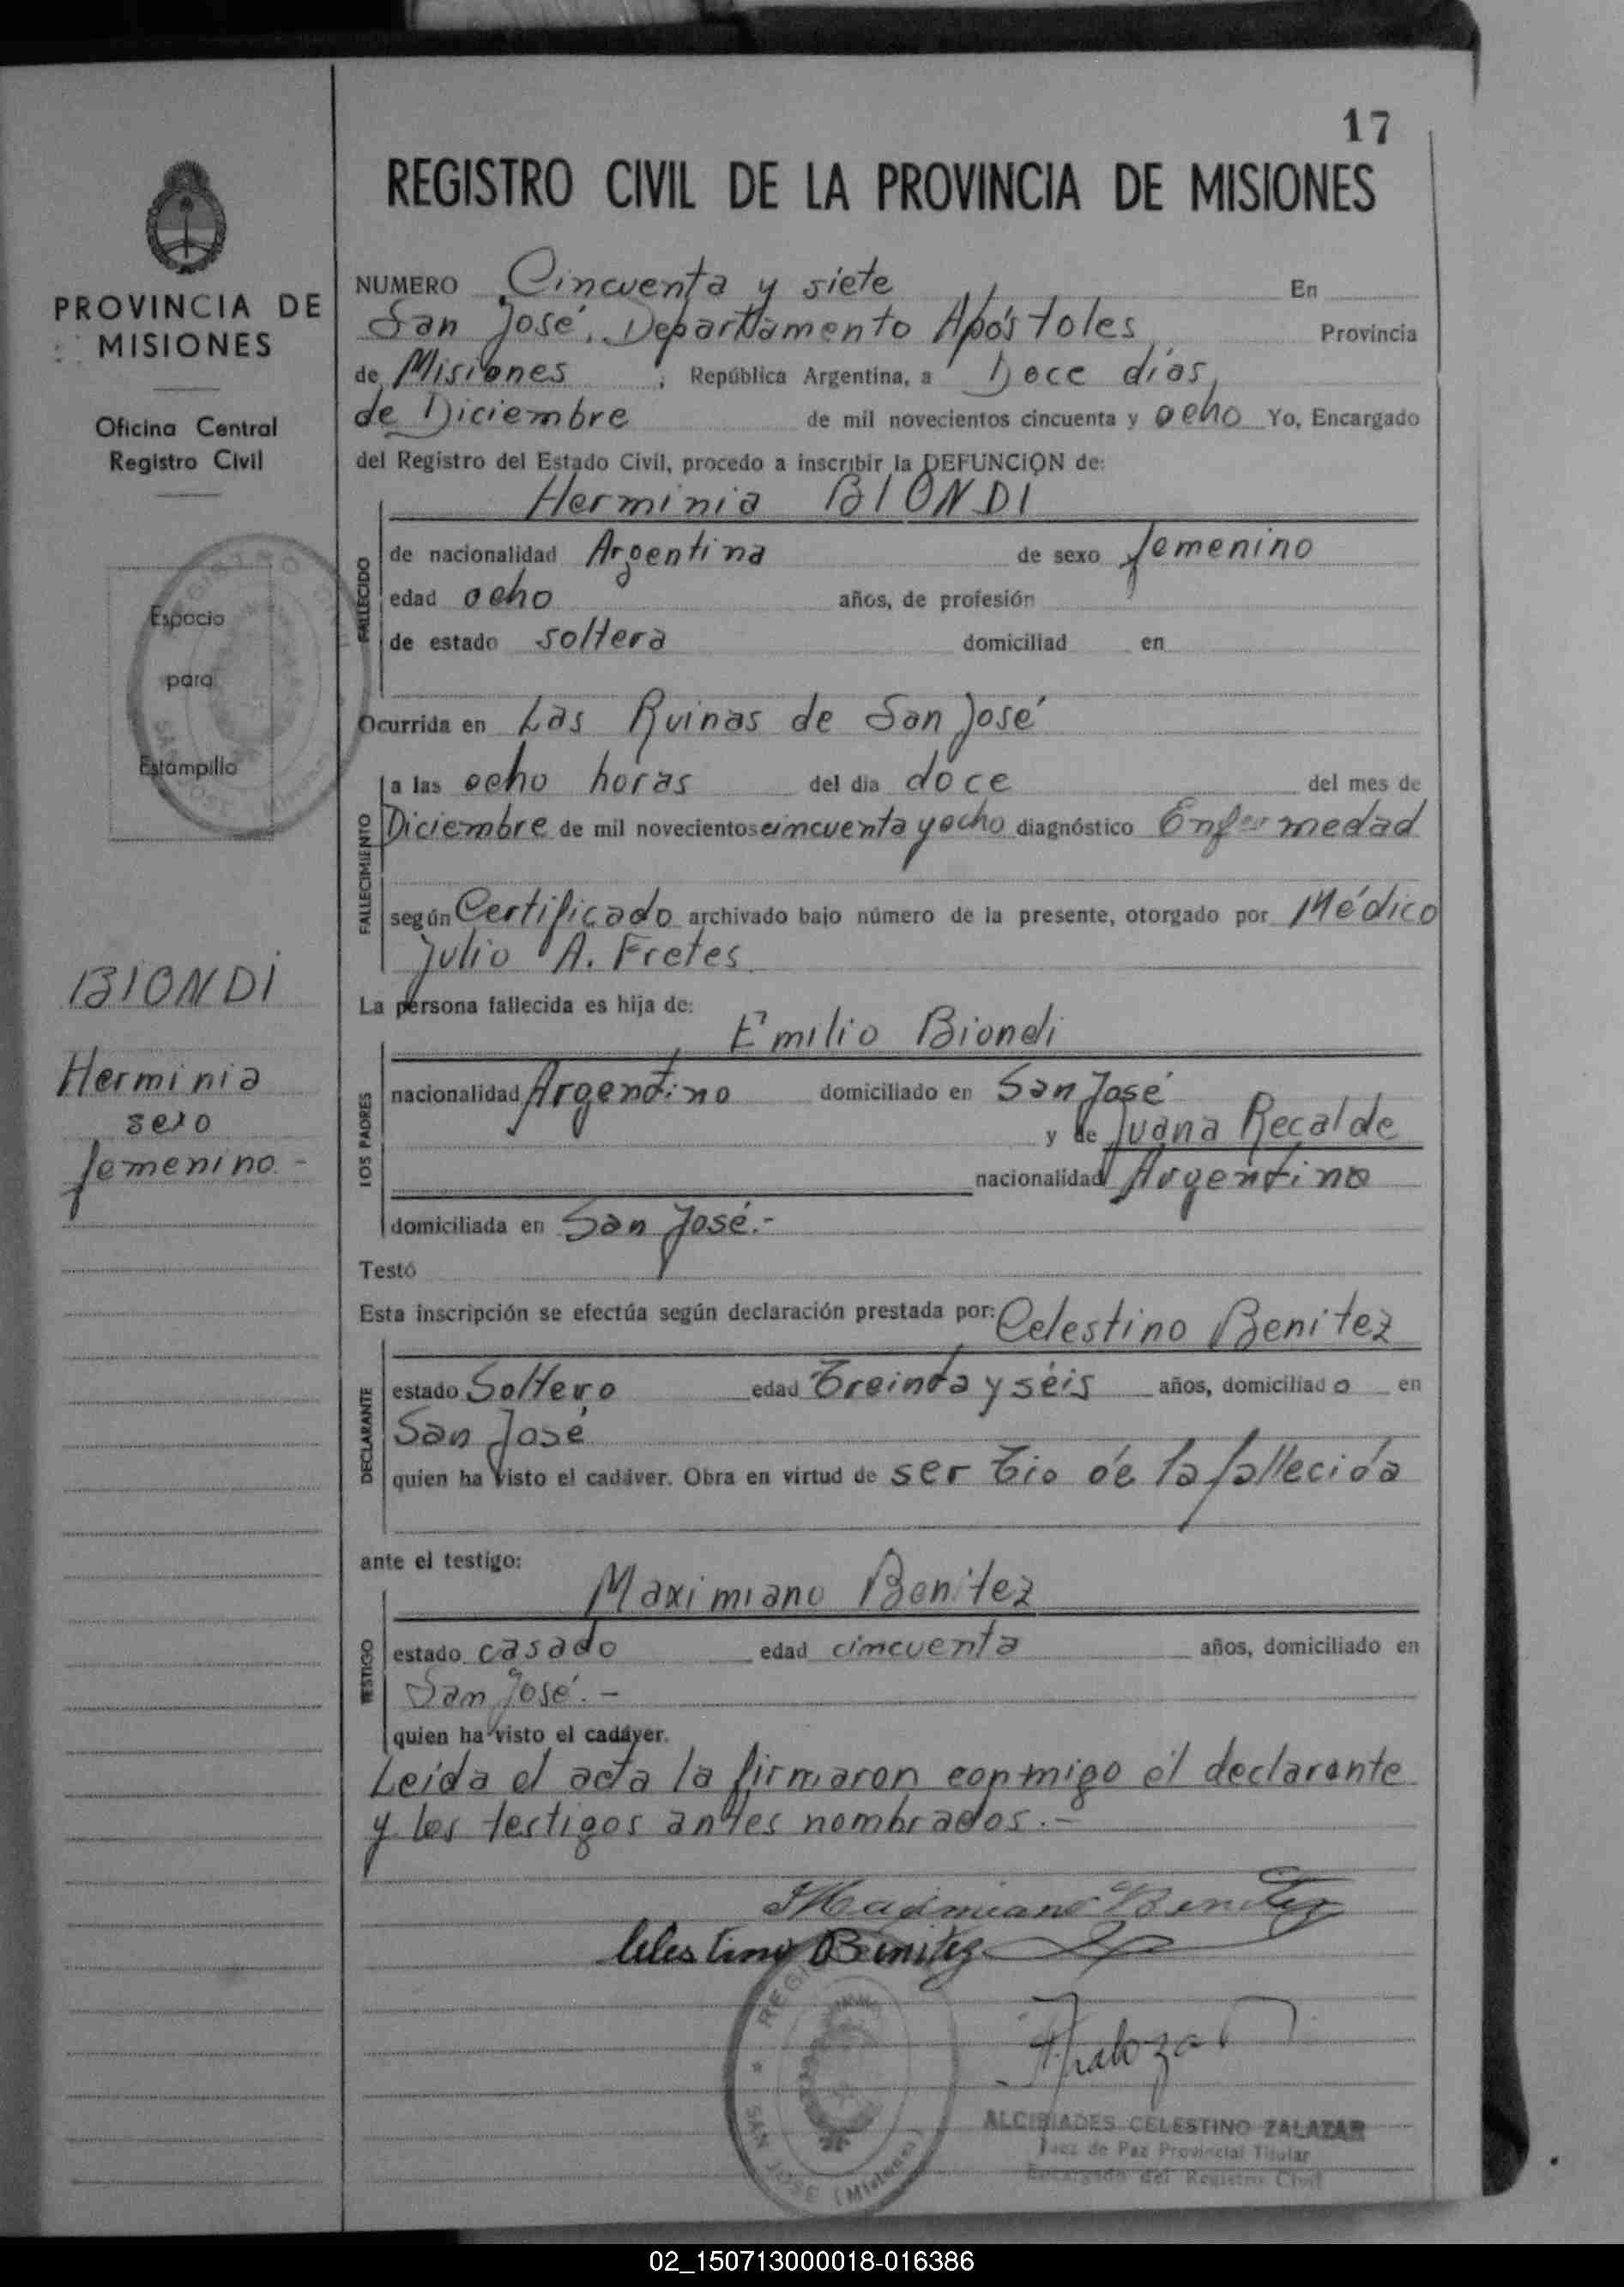 17
REGISTRO CIVIL DE LA PROVINCIA DE MISIONES
PROVINCIA DE
MISIONES
Oficina Central
Registro Civil
Espacio
para
Estampilla
BIONDI
Herminia
sexo
femenino -
NUMERO Cincuenta y siete En
San José, Departamento Apóstoles Provincia
de Misiones, República Argentina, a Doce días,
de Diciembre de mil novecientos cincuenta y ocho Yo, Encargado
del Registro del Estado Civil, procedo a inscribir la DEFUNCION de:
Herminia BIONDI
FALLECIDO
de nacionalidad Argentina de sexo femenino
edad ocho años, de profesión
de estado soltera domiciliad en
Ocurrida en Las Ruinas de San José
FALLECIMIENTO
a las ocho horas del día doce del mes de
Diciembre de mil novecientos cincuenta y ocho diagnóstico Enfermedad
según Certificado archivado bajo número de la presente, otorgado por Médico
Julio A. Fretes
La persona fallecida es hija de:
Emilio Biondi
LOS PADRES
nacionalidad Argentino domiciliado en San José
y de Juana Recalde
nacionalidad Argentina
domiciliada en San José.-
Testó
Esta inscripción se efectúa según declaración prestada por: Celestino Benitez
DECLARANTE
estado Soltero edad Treinta y séis años, domiciliado en
San José
quien ha visto el cadáver. Obra en virtud de ser tio de la fallecida
ante el testigo:
Maximiano Benitez
TESTIGO
estado casado edad cincuenta años, domiciliado en
San José.-
quien ha visto el cadáver.
Leida el acta la firmaron conmigo el declarante
y los testigos antes nombrados.-
Maximiano Benitez
Celestino Benitez
SAN JOSE (Misiones)
ALCIBIADES CELESTINO ZALAZAR
Juez de Paz Provincial Titular
Encargado del Registro Civil
02_150713000018-016386